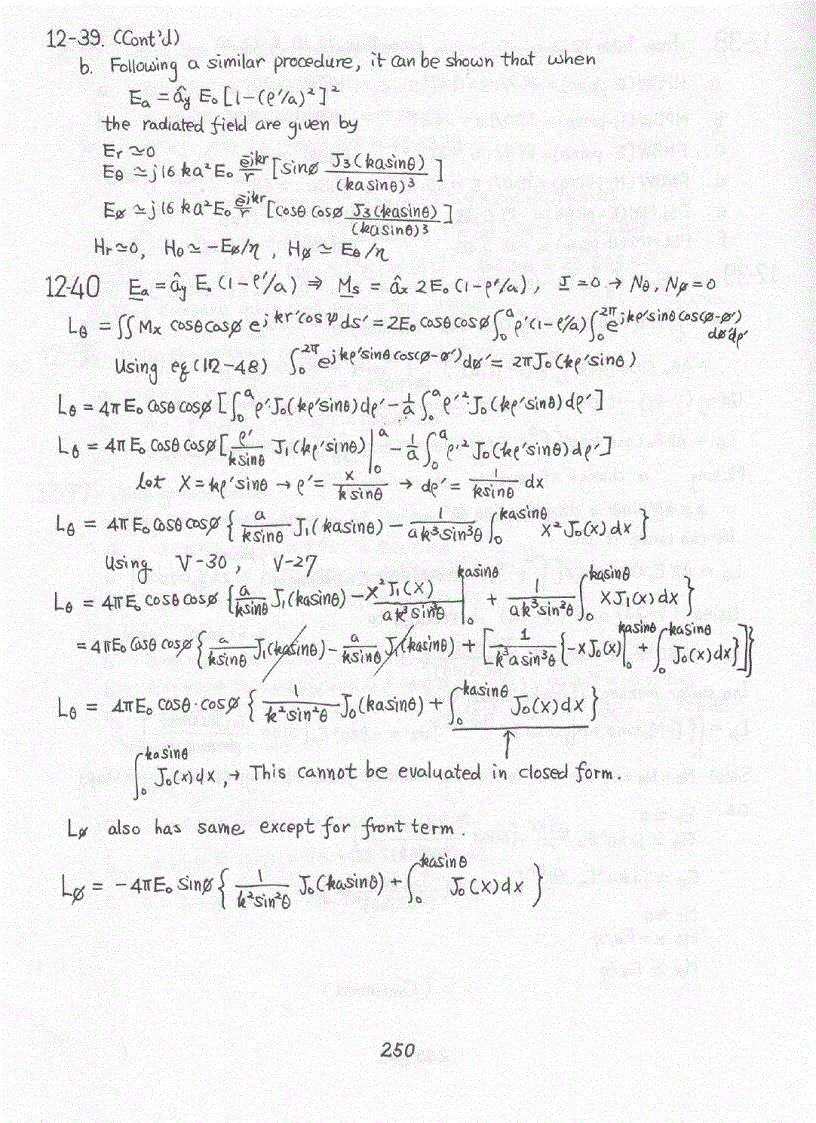 12-39. (Cont'd)
b. Following a similar procedure, it can be shown that when
Ea = ây E₀ [1-(ρ'/a)²]²
the radiated field are given by
Er ≃ 0
Eθ ≃ j16 ka²E₀ e^{-jkr}/r [sinø J₃(kasinθ)/(kasinθ)³]
Eø ≃ j16 ka²E₀ e^{-jkr}/r [cosθ cosø J₃(kasinθ)/(kasinθ)³]
Hr ≃ 0, Hθ ≃ -Eø/η, Hø ≃ Eθ/η
12-40 Ea = ây E₀ (1-ρ'/a) ⇒ Ms = âx 2E₀ (1-ρ'/a), J = 0 → Nθ, Nø = 0
Lθ = ∬ Mx cosθ cosø e^{jkr'cosψ} ds' = 2E₀ cosθ cosø ∫₀^a ρ'(1-ρ'/a) ∫₀^{2π} e^{jkρ'sinθ cos(ø-ø')} dø'dρ'
Using eq (12-48) ∫₀^{2π} e^{jkρ'sinθ cos(ø-ø')} dø' = 2πJ₀(kρ'sinθ)
Lθ = 4πE₀ cosθ cosø [∫₀^a ρ'J₀(kρ'sinθ)dρ' - 1/a ∫₀^a ρ'² J₀(kρ'sinθ)dρ']
Lθ = 4πE₀ cosθ cosø [ρ'/(ksinθ) J₁(kρ'sinθ)|₀^a - 1/a ∫₀^a ρ'² J₀(kρ'sinθ)dρ']
let X = kρ'sinθ → ρ' = x/(ksinθ) → dρ' = 1/(ksinθ) dx
Lθ = 4πE₀ cosθ cosø { a/(ksinθ) J₁(kasinθ) - 1/(ak³sin³θ) ∫₀^{kasinθ} x² J₀(x)dx }
Using V-30, V-27
Lθ = 4πE₀ cosθ cosø { a/(ksinθ) J₁(kasinθ) - x² J₁(x)/(ak³sin³θ) |₀^{kasinθ} + 1/(ak³sin³θ) ∫₀^{kasinθ} xJ₁(x)dx }
= 4πE₀ cosθ cosø { a/(ksinθ) J₁(kasinθ) - a/(ksinθ) J₁(kasinθ) + [1/(k³a sin³θ) {-xJ₀(x)|₀^{kasinθ} + ∫₀^{kasinθ} J₀(x)dx}]}
Lθ = 4πE₀ cosθ·cosø { 1/(k²sin²θ) J₀(kasinθ) + ∫₀^{kasinθ} J₀(x)dx }
∫₀^{kasinθ} J₀(x)dx, → This cannot be evaluated in closed form.
Lø also has same except for front term.
Lø = -4πE₀ sinø { 1/(k²sin²θ) J₀(kasinθ) + ∫₀^{kasinθ} J₀(x)dx }
250